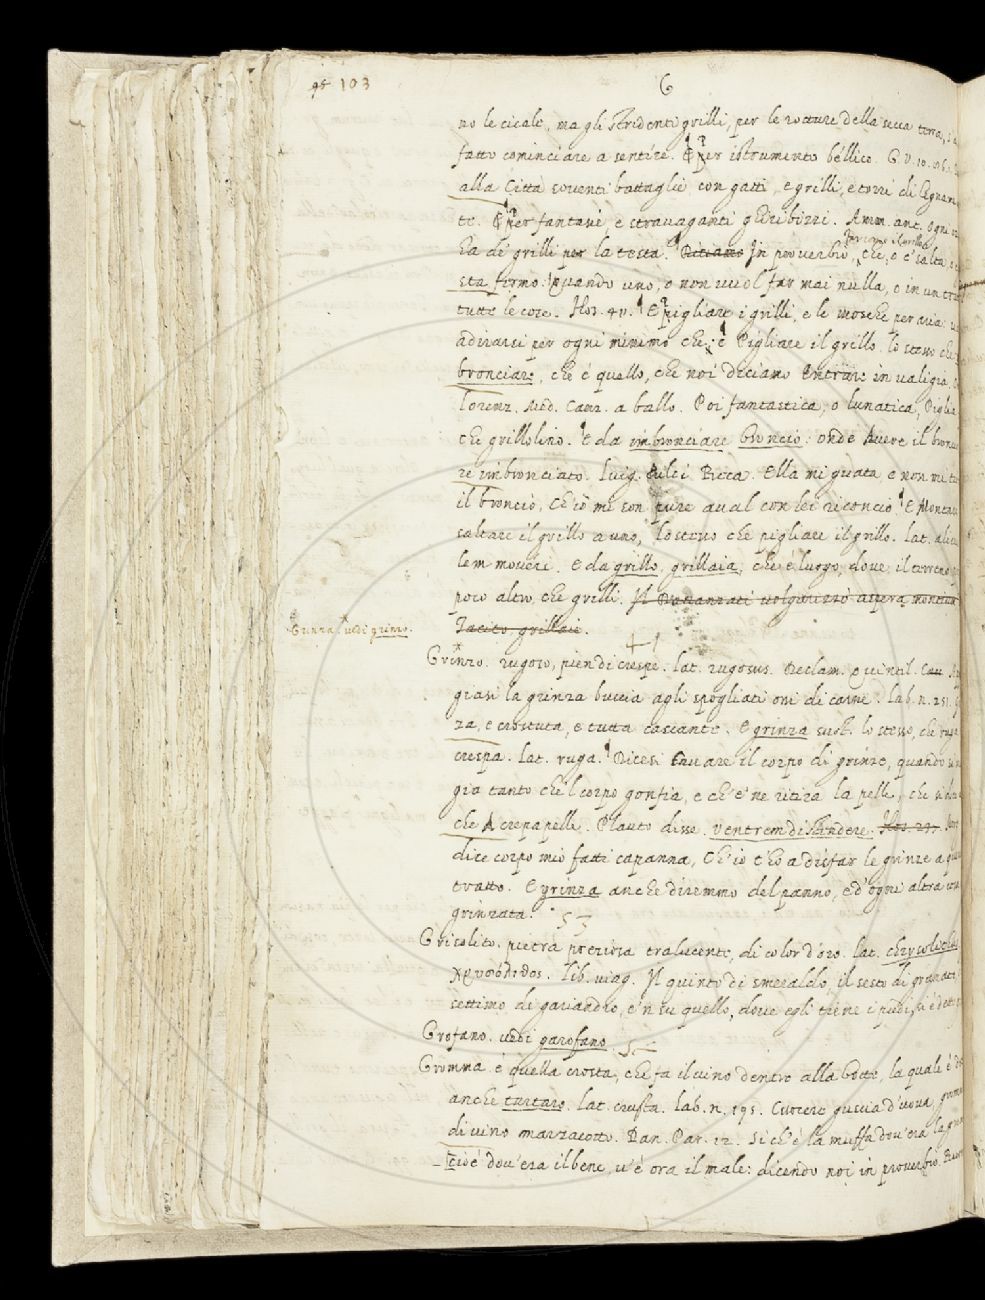 95 103
G
no le cicale, ma gli stridenti grilli, per le rotture della secca terra,
fatto cominciare a sentire. E Per istrumento bellico. G. V. 10.
alla Città soventi battaglie con gatti, e grilli, e torri di legname
te. E Per fantasie, e stravaganti ghiribizzi. Amm. ant. Ogni
ha de grilli per la testa. Diciamo In proverbio, che, o e' salta,
sta fermo: Quando uno, o non vuol far mai nulla, o in un
tutte le cose. Flos. 48. E Pigliare i grilli, e le mosche per aria:
adirarsi per ogni minimo che; e Pigliare il grillo lo stesso che
bronciare, che è quello, che noi diciamo Entrare in valigia,
Lorenz. Med. Canz. a ballo. Poi fantastica, o lunatica, Piglia
che grillolino. E da imbronciare broncio: onde Avere il broncio
re imbronciato. Luig. Pulci Beca. Ella mi guata, e non mi
il broncio, Ch'io mi son pure aval con lei riconcio. E Montare
saltare il grillo a uno, lo stesso che pigliare il grillo. lat.
lem movere. E da grillo, grillaia; che è luogo, dove il terreno
poco altro, che grilli. Il Davanzati volgarizzò aspera montium
Tacito grillaie.
Grinza vedi grinzo.
Grinzo. rugoso, pien di crespe. lat. rugosus. Declam. Quintil.
giasi la grinza buccia agli spogliati ossi di carne. Lab. n. 251.
za, e crostuta, e tutta cascante. E grinza sust. lo stesso, che ruga
crespa. lat. ruga. Dicesi Cavare il corpo di grinze, quando
gia tanto che'l corpo gonfia, e ch'e' ne ritira la pelle, che si
che A crepapelle. Plauto disse. ventrem distendere. Flos. 29.
dice corpo mio fatti capanna, Ch'io t'ho a disfar le grinze a
tratto. E grinza anche diremmo del panno, e d'ogni altra cosa
grinzata. 53
Grisolito. pietra preziosa tralucente, di color d'oro. lat. chrysolithus
χρυσόλιθος. Lib. viag. Il quinto di smeraldo, il sesto di granati,
settimo di gariandro, e 'n su quello, dove egli tiene i piedi, si è
Grofano. vedi garofano.
Gromma. è quella crosta, che fa il vino dentro alla botte, la quale è
anche tartaro. lat. crusta. Lab. n. 195. Cuocere guscia d'uova,
di vino marzacotto. Dan. Par. 12. Sì ch'è la muffa dov'era la
cioè dov'era il bene, v'è ora il male: dicendo noi in proverbio.